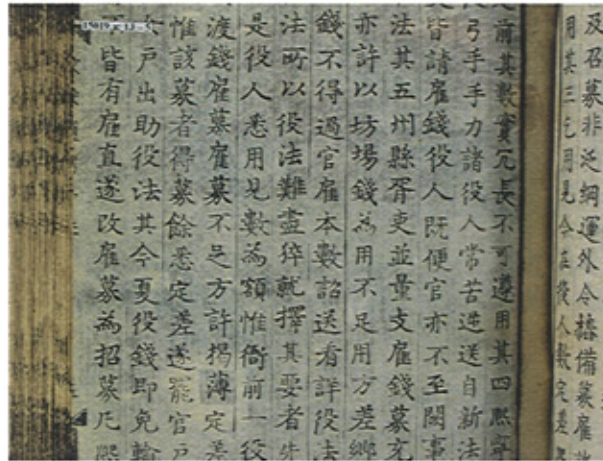 及召募非泛綱運外令樁備募雇
用其三乞用見今在役人數定差
前其數實冗長不可遵用其四熙寧
弓手手力諸役人常苦逆送自新法
皆請雇錢役人既便官亦不至闕事
法其五州縣胥吏並量支雇錢募充
亦許以坊場錢為用不足用方差鄉
錢不得過官雇本數詔送看詳役法
法所以役法難盡猝就擇其要者先
是役人悉用見數為額惟衙前一役
渡錢雇募雇募不足方許揭薄定差
惟該募者得募餘悉定差遂罷官戶
女戶出助役法其今夏役錢即免輸
皆有雇直遂改雇募為招募凡熙